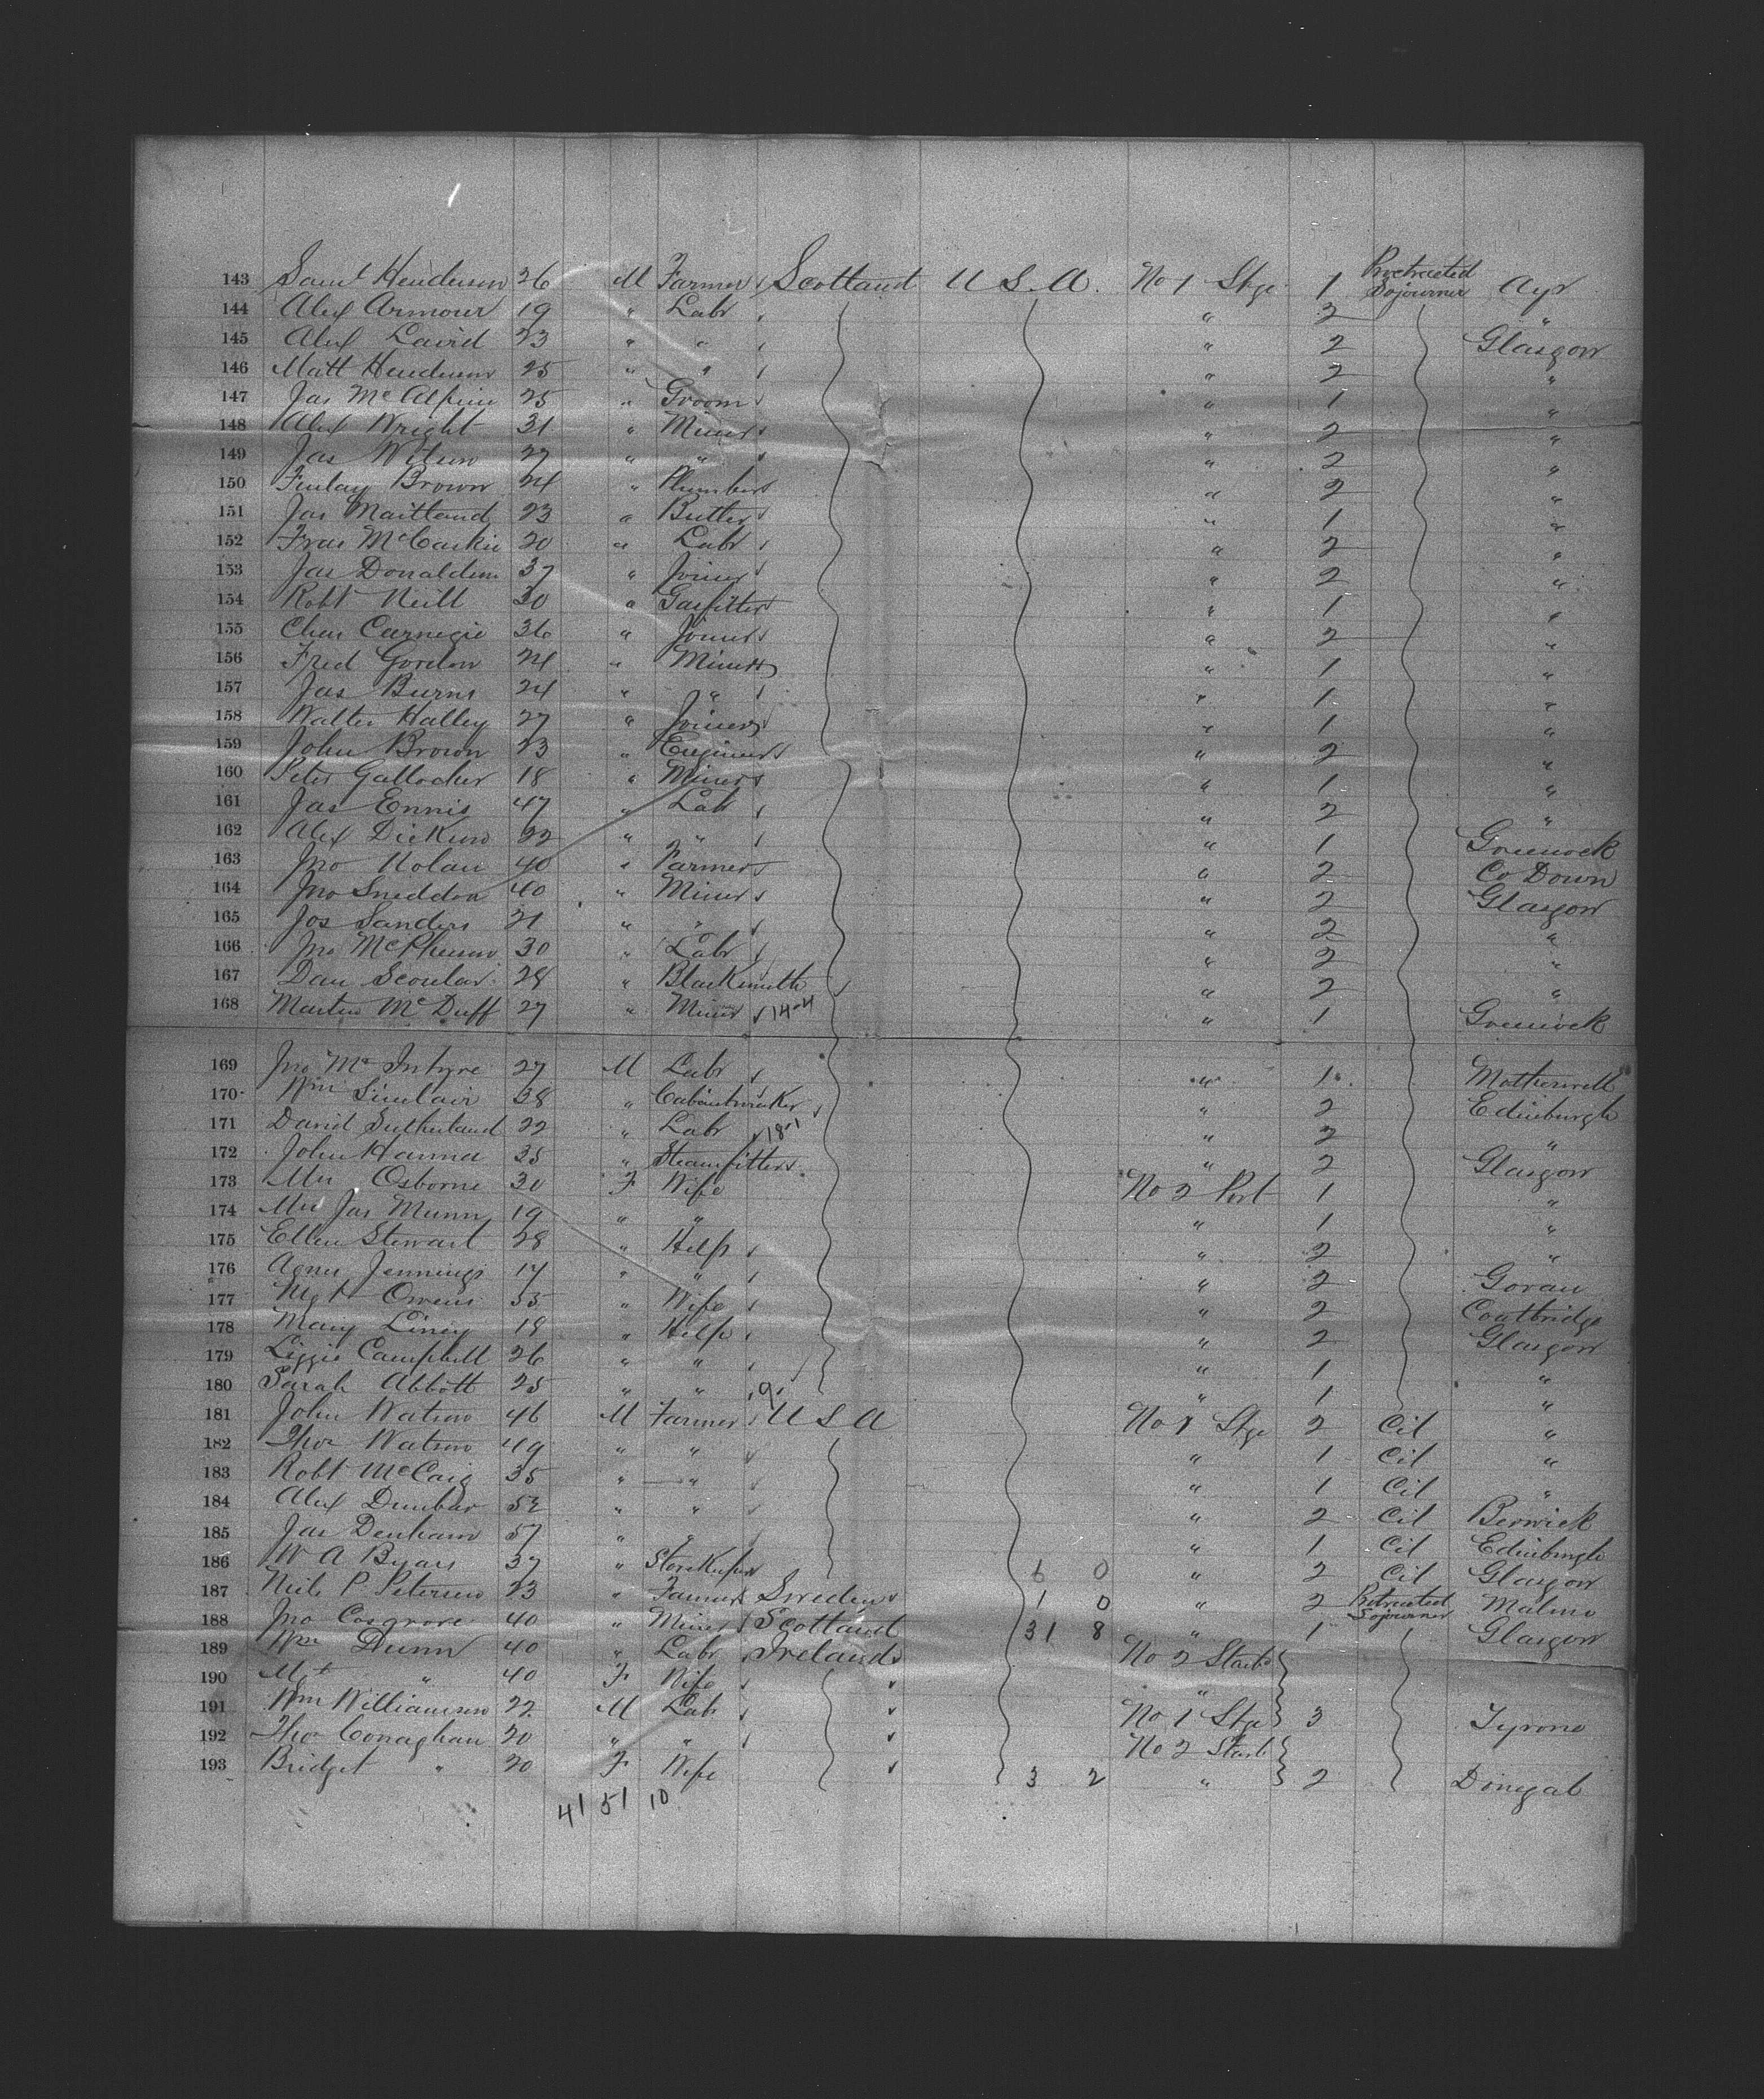 143 Saml Henderson 26 M Farmer Scotland U.S.A. No 1 Stge 1 Protracted Sojourner Ayr
144 Alex Armour 19 " Labr " 2 "
145 Alex Laird 23 " " " 2 Glasgow
146 Matt Henderson 25 " " " 2 "
147 Jas McAlpine 25 " Groom " 1 "
148 Alex Wright 31 " Miner " 2 "
149 Jas Wilson 27 " " " 2 "
150 Finlay Brown 24 " Plumber " 2 "
151 Jas Maitland 23 " Butler " 1 "
152 Fras McCaskie 20 " Labr " 2 "
153 Jas Donaldson 37 " Joiner " 2 "
154 Robt Neill 30 " Gasfitter " 1 "
155 Chas Carnegie 36 " Joiner " 2 "
156 Fred Gordon 24 " Miner " 1 "
157 Jas Burns 24 " " " 1 "
158 Walter Halley 27 " Joiner " 1 "
159 John Brown 23 " Engineer " 2 "
160 Peter Gallocher 18 " Miner " 1 "
161 Jas Ennis 47 " Labr " 2 "
162 Alex Dickson 22 " " " 1 Greenock
163 Jno Nolan 40 " Farmer " 2 Co Down
164 Jno Sneddon 40 " Miner " 2 Glasgow
165 Jos Sanders 21 " " " 2 "
166 Jno McPherson 30 " Labr " 2 "
167 Dan Scoular 28 " Blacksmith " 2 "
168 Martin McDuff 27 " Miner 14-4 " 1 Greenock
169 Jno McIntyre 27 M Labr " 1 Motherwell
170 Wm Sinclair 38 " Cabinetmaker " 2 Edinburgh
171 David Sutherland 22 " Labr 18-1 " 2 "
172 John Hanna 35 " Steamfitter " 2 Glasgow
173 Mrs Osborne 30 F Wife No 2 Port 1 "
174 Mrs Jas Munn 19 " " " 1 "
175 Ellen Stewart 28 " Help " 2 "
176 Agnes Jennings 17 " " " 2 Govan
177 Mgt Owens 35 " Wife " 2 Coatbridge
178 Mary Liney 18 " Help " 2 Glasgow
179 Lizzie Campbell 26 " " " 1 "
180 Sarah Abbott 25 " " 9 " 1 "
181 John Watson 46 M Farmer U S A No 1 Stge 2 Cit "
182 Thos Watson 49 " " " 1 Cit "
183 Robt McCaig 35 " " " 1 Cit "
184 Alex Dunbar 52 " " " 2 Cit Berwick
185 Jas Denham 57 " " " 1 Cit Edinburgh
186 W A Byars 37 " Storekeeper 6 0 " 2 Cit Glasgow
187 Neils P Petersen 23 " Farmer Sweden 1 0 " 2 Protracted Sojourner Malmo
188 Jno Cosgrove 40 " Miner Scotland 31 8 " 1 Glasgow
189 Wm Dunn 40 " Labr Ireland No 2 Starb
190 Mgt " 40 F Wife "
191 Wm Williamson 22 M Labr No 1 Stge 3 Tyrone
192 Thos Conaghan 20 " " No 2 Starb
193 Bridget " 20 F Wife 3 2 " 2 Dinegal
41 51 10